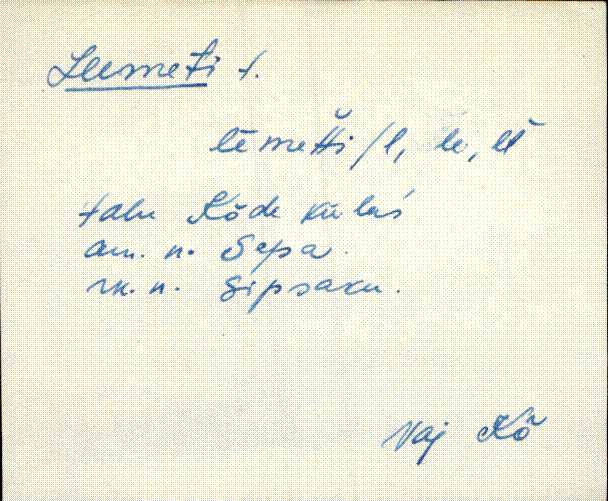 Leemeti t.
lēmetti /l, le, lt
talu Kõde külas
am. n. Sepa.
rk. n. Sipsaku.
Vaj Kõ